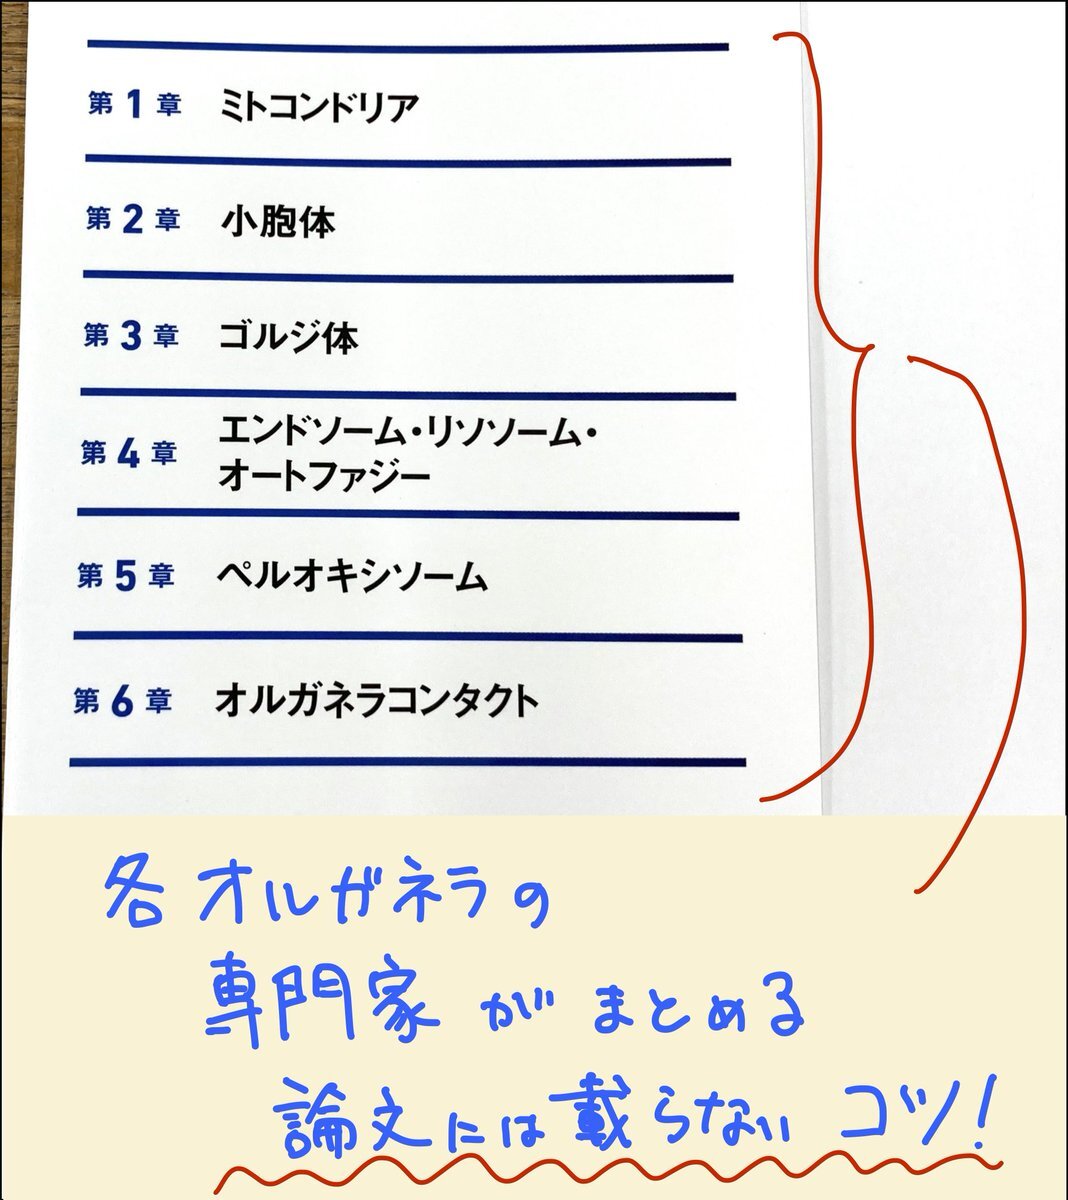 第1章 ミトコンドリア
第2章 小胞体
第3章 ゴルジ体
第4章 エンドソーム・リソソーム・
オートファジー
第5章 ペルオキシソーム
第6章 オルガネラコンタクト
各オルガネラの
専門家がまとめる
論文には載らないコツ!